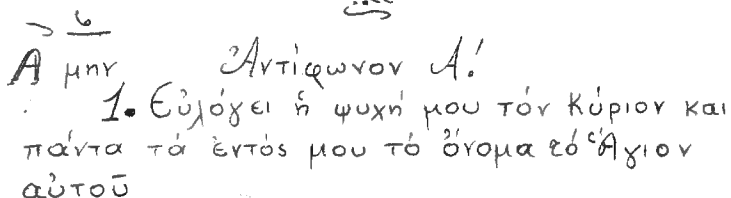 Ἀμην Ἀντίφωνον Α!
1. Εὐλόγει ἡ ψυχή μου τόν Κύριον και
πάντα τά ἐντός μου τό ὄνομα τό Ἅγιον
αὐτοῦ